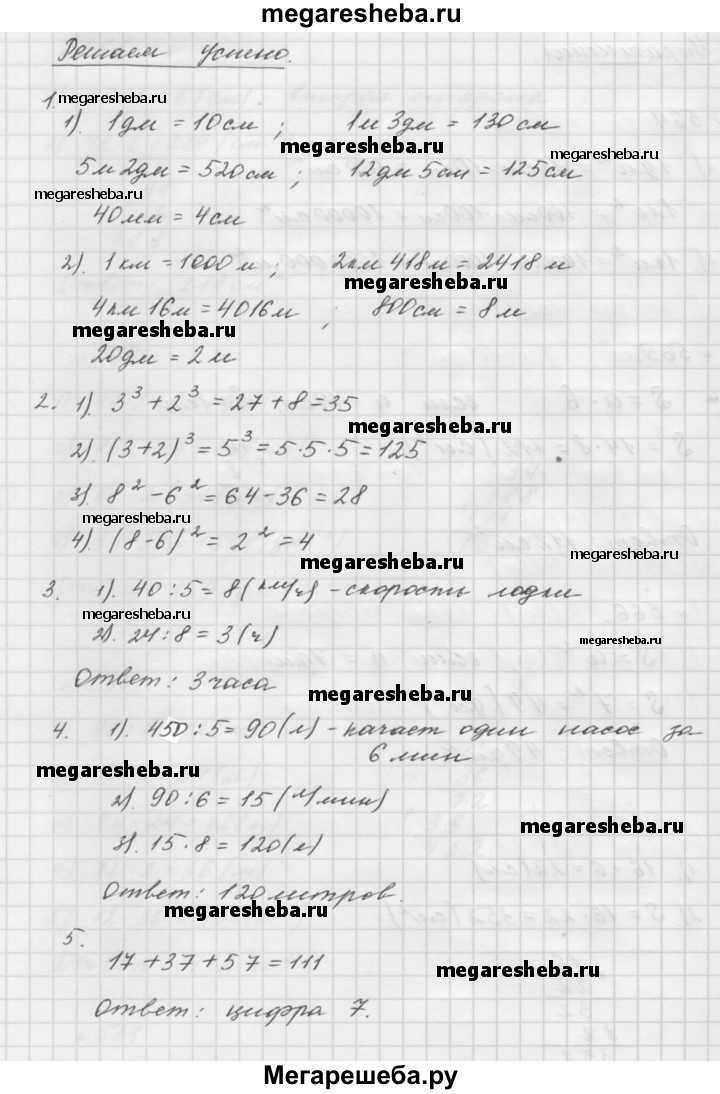 megaresheba.ru
Решаем устно.
1. megaresheba.ru
1). 1дм = 10см ; 1м 3дм = 130см
megaresheba.ru
megaresheba.ru
5м 2дм = 520см ; 12дм 5см = 125см
megaresheba.ru
40мм = 4см
2). 1км = 1000м ; 2км 418м = 2418м
megaresheba.ru
4км 16м = 4016м ; 800см = 8м
megaresheba.ru
20дм = 2м
2. 1). 3³ + 2³ = 27 + 8 = 35
megaresheba.ru
2). (3+2)³ = 5³ = 5·5·5 = 125
3). 8² - 6² = 64 - 36 = 28
megaresheba.ru
4). (8-6)² = 2² = 4
megaresheba.ru
megaresheba.ru
3. 1). 40 : 5 = 8 (км/ч) - скорость лодки
megaresheba.ru
2). 24 : 8 = 3 (ч)
megaresheba.ru
Ответ: 3 часа
megaresheba.ru
4. 1). 450 : 5 = 90 (л) - качает один насос за
6 мин
megaresheba.ru
2). 90 : 6 = 15 (1 мин)
megaresheba.ru
3). 15 · 8 = 120 (л)
Ответ: 120 литров.
megaresheba.ru
5.
17 + 37 + 57 = 111
megaresheba.ru
Ответ: цифра 7.
Мегарешеба.ру